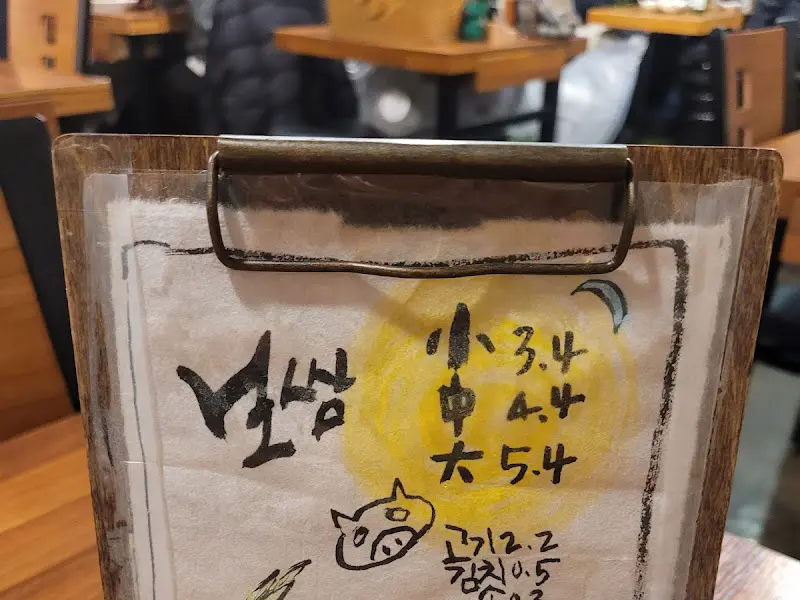 보쌈
小 3.4
中 4.4
大 5.4
고기 2.2
김치 0.5